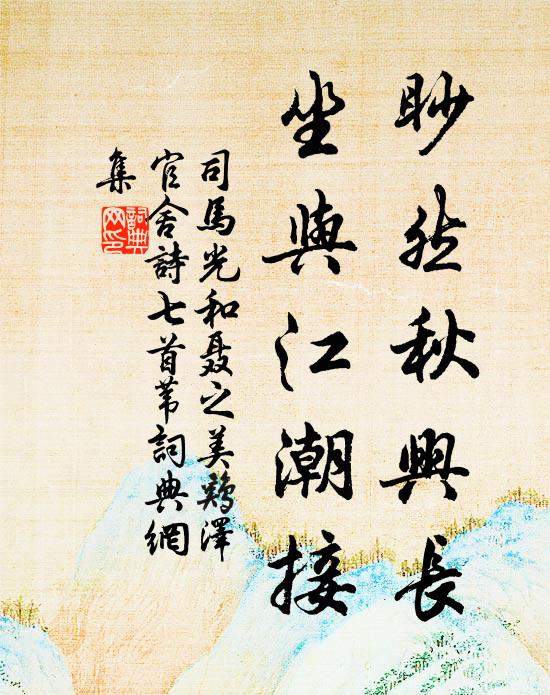 眇然秋興長
坐與江潮接
司馬光和聂之美鷄澤
官舍詩七首苇詞典網
集
詞典网印